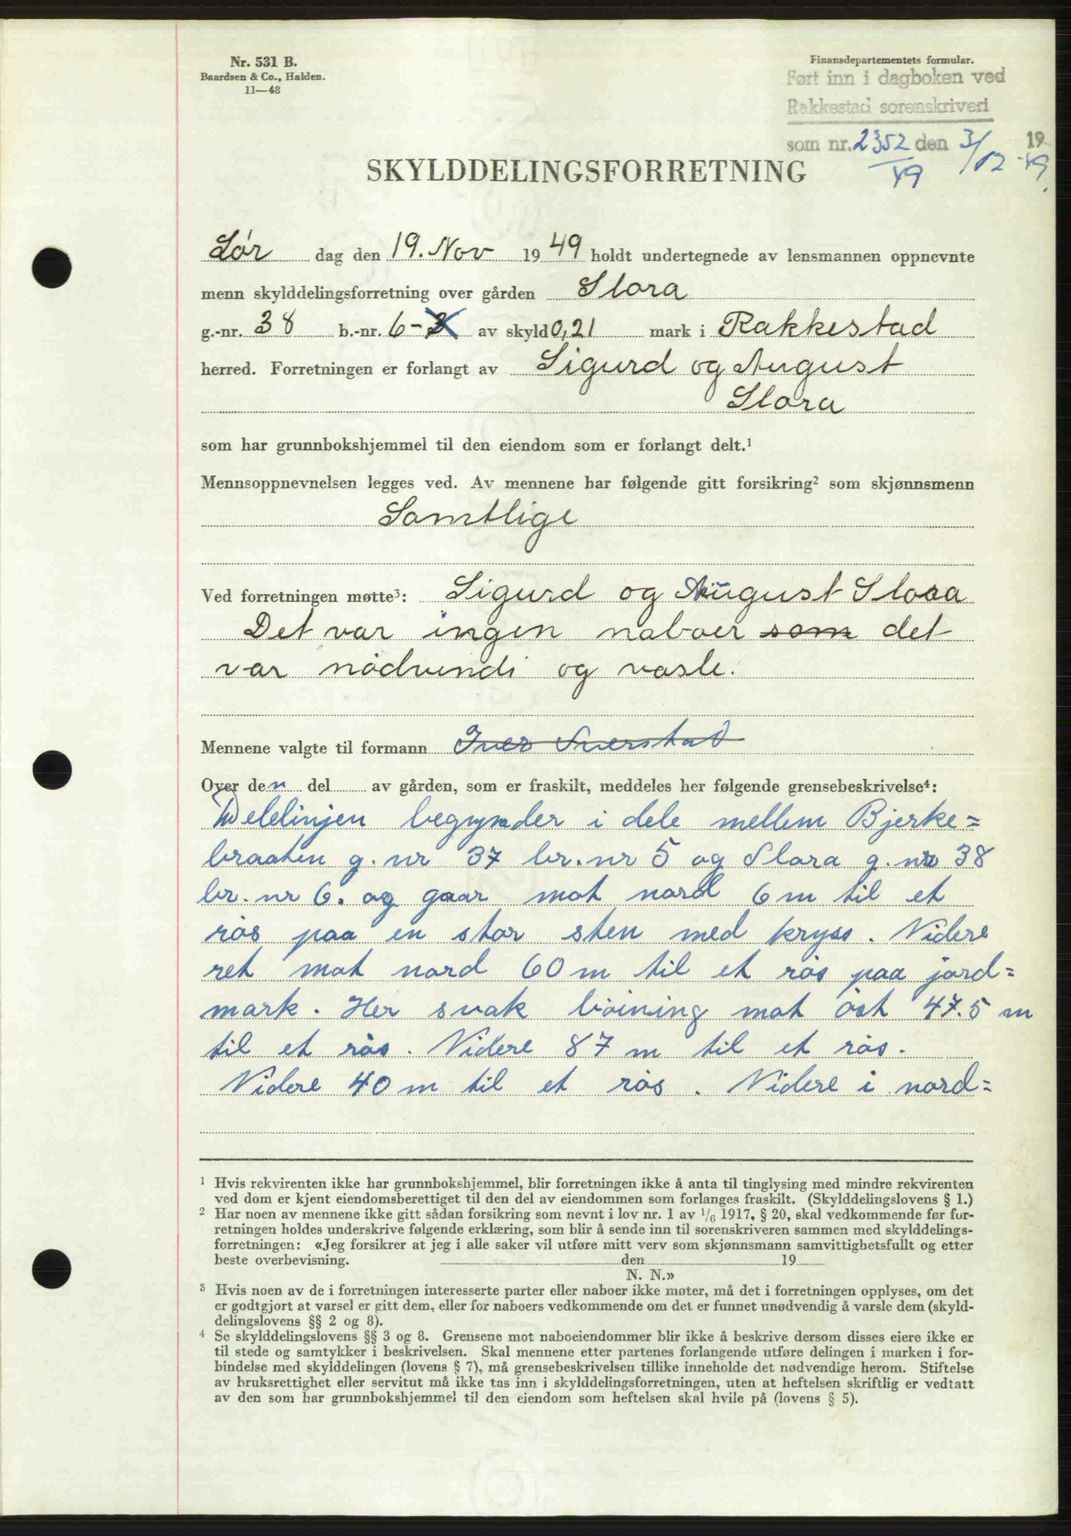 Nr. 531 B.
Baardsen & Co., Halden.
11—48
Finansdepartementets formular.
Ført inn i dagboken ved
Rakkestad sorenskriveri
som nr. 2352/49 den 3/12 1949.
SKYLDDELINGSFORRETNING
Lør dag den 19. Nov 1949 holdt undertegnede av lensmannen oppnevnte
menn skylddelingsforretning over gården Slora
g.-nr. 38 b.-nr. 6-3 av skyld 0,21 mark i Rakkestad
herred. Forretningen er forlangt av Sigurd og August
Slora
som har grunnbokshjemmel til den eiendom som er forlangt delt.¹
Mennsoppnevnelsen legges ved. Av mennene har følgende gitt forsikring² som skjønnsmenn
Samtlige
Ved forretningen møtte³: Sigurd og August Slora
Det var ingen naboer som det
var nødvendi og vasle.
Mennene valgte til formann Iver
Over den del av gården, som er fraskilt, meddeles her følgende grensebeskrivelse⁴:
Delelinjen begynder i dele mellem Bjerke=
braaten g. nr 37 br. nr 5 og Slora g. nr 38
br. nr 6. og gaar mot nord 6 m til et
røs paa en stor sten med kryss. Videre
ret mot nord 60 m til et røs paa jord=
mark. Her svak böining mot öst 47.5 m
til et røs. Videre 87 m til et røs.
Videre 40 m til et røs. Videre i nord=
¹ Hvis rekvirenten ikke har grunnbokshjemmel, blir forretningen ikke å anta til tinglysing med mindre rekvirenten
ved dom er kjent eiendomsberettiget til den del av eiendommen som forlanges fraskilt. (Skylddelingslovens § 1.)
² Har noen av mennene ikke gitt sådan forsikring som nevnt i lov nr. 1 av 1/6 1917, § 20, skal vedkommende før for-
retningen holdes underskrive følgende erklæring, som blir å sende inn til sorenskriveren sammen med skylddelings-
forretningen: «Jeg forsikrer at jeg i alle saker vil utføre mitt verv som skjønnsmann samvittighetsfullt og etter
beste overbevisning. den 19
N. N.»
³ Hvis noen av de i forretningen interesserte parter eller naboer ikke møter, må det i forretningen opplyses, om det
er godtgjort at varsel er gitt dem, eller for naboers vedkommende om det er funnet unødvendig å varsle dem (skyld-
delingslovens §§ 2 og 8).
⁴ Se skylddelingslovens §§ 3 og 8. Grensene mot naboeiendommer blir ikke å beskrive dersom disses eiere ikke er
til stede og samtykker i beskrivelsen. Skal mennene etter partenes forlangende utføre delingen i marken i for-
bindelse med skylddelingen (lovens § 7), må grensebeskrivelsen tillike inneholde det nødvendige herom. Stiftelse
av bruksrettighet eller servitut må ikke tas inn i skylddelingsforretningen, uten at heftelsen skriftlig er vedtatt
av den som har grunnbokshjemmel til den eiendom som heftelsen skal hvile på (lovens § 5).